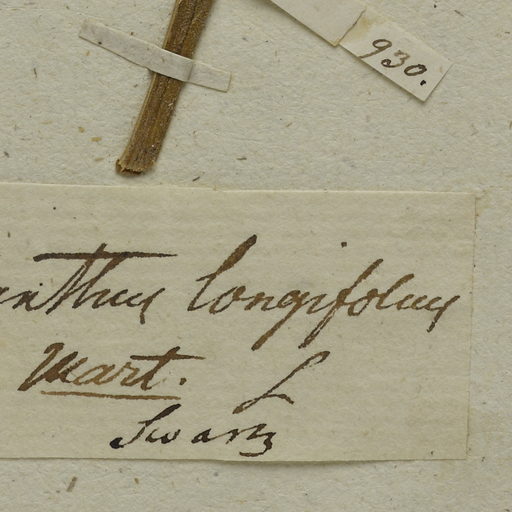 930.
anthus longifolius
Mart. L
Swartz